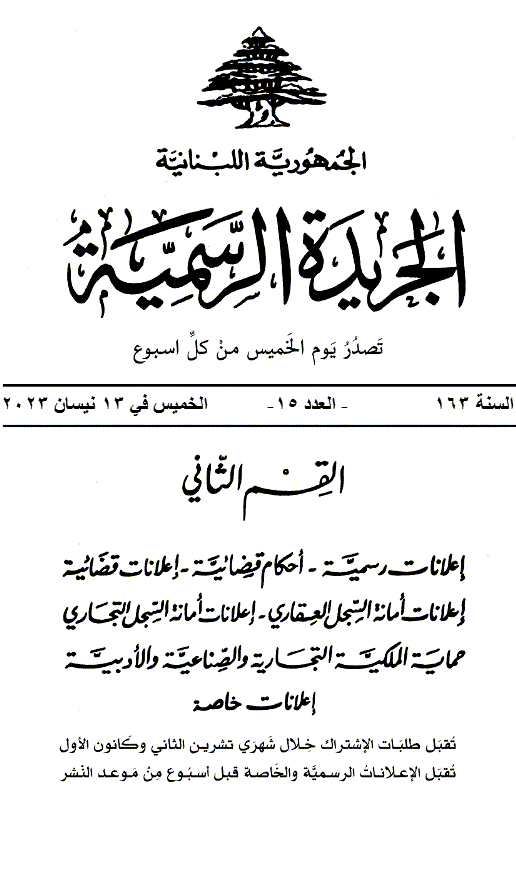 الجُمهُوريَّة اللبْنانيَّة
الجَريدَة الرسَّميَّة
تَصدُرُ يَوم الخَميس منْ كلِّ اسبوع
السنة ١٦٣ - العدد ١٥- الخميس في ١٣ نيسان ٢٠٢٣
القِسْم الثّاني
إعلانات رسميَّة - أحكام قضائيَّة - إعلانات قضائية
إعلانات أمانة السّجل العقاري - إعلانات أمانة السّجل التّجاري
حماية الملكيَّة التجارية والصّناعيَّة والأدبيَّة
إعلانات خاصة
تُقبَل طلبَات الإشتراك خِلال شَهرَي تشرين الثاني وكَانون الأول
تُقبَل الإعلاناتُ الرسميَّة والخَاصة قبل أسبُوع مِنْ مَوعد النَشر